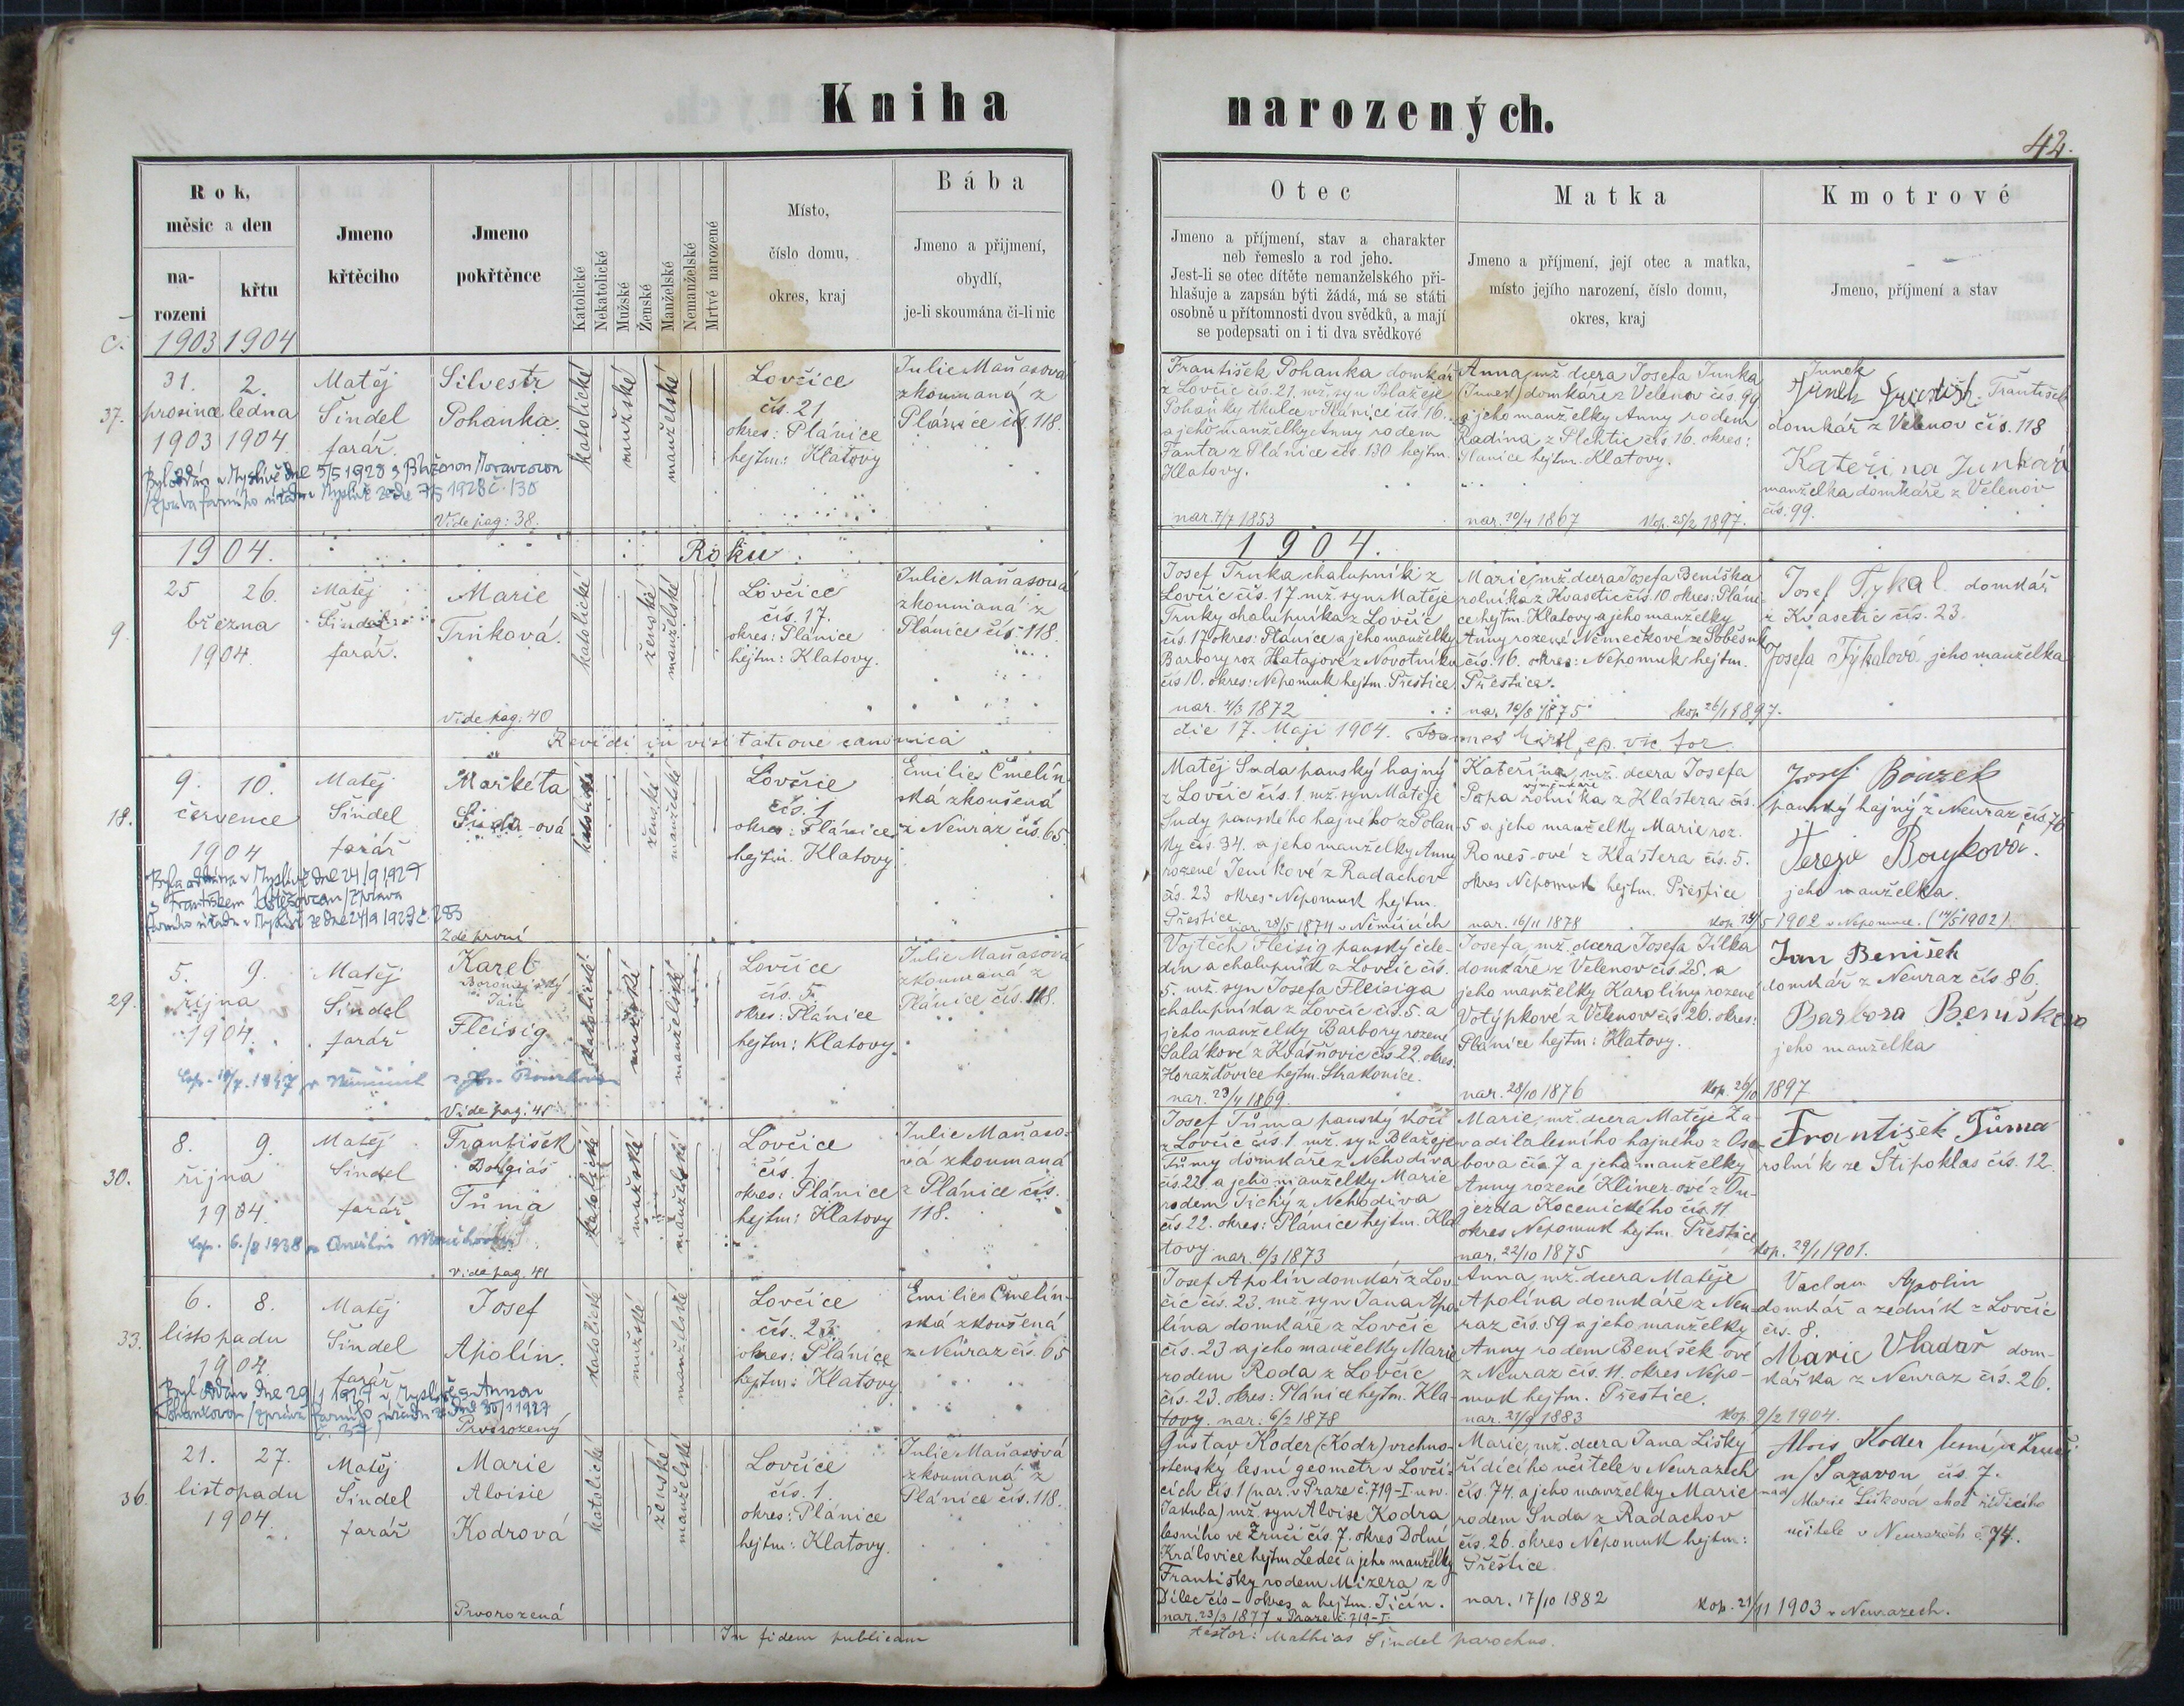 Kniha
narozených.
42.
Rok,
měsíc a den
na-
rozeni
křtu
Jmeno
křtěcího
Jmeno
pokřtěnce
Katolické
Nekatolické
Mužské
Ženské
Manželské
Nemanželské
Mrtvé narozené
Místo,
číslo domu,
okres, kraj
Bába
Jmeno a přijmení,
obydlí,
je-li skoumána či-li nic
Otec
Jmeno a příjmení, stav a charakter
neb řemeslo a rod jeho.
Jest-li se otec dítěte nemanželského při-
hlašuje a zapsán býti žádá, má se státi
osobně u přítomnosti dvou svědků, a mají
se podepsati on i ti dva svědkové
Matka
Jmeno a příjmení, její otec a matka,
místo jejího narození, číslo domu,
okres, kraj
Kmotrové
Jmeno, příjmení a stav
č.
1903 1904
37.
31. 2.
prosince ledna
1903 1904
Matěj
Šindel
farář.
Silvestr
Pohanka.
Vide pag: 38.
katolické
mužské
manželské
Lovčice
čís. 21
okres: Plánice
hejtm: Klatovy
Julie Maňasová
zkoumaná z
Plánice čís. 118.
František Pohanka domkář
z Lovčic čís. 21. mž. syn Blažeje
Pohanky tkalce v Plánici čís 16.
a jeho manželky Anny rodem
Fanta z Plánice čís. 130 hejtm.
Klatovy.
nar. 7/7 1853
Anna, mž. dcera Josefa Junka
(Junek) domkáře z Velenov čís. 99
a jeho manželky Anny rodem
Radina z čís 16. okres:
Planice hejtm. Klatovy.
nar. 10/4 1867 kop. 25/2 1897.
Junek
František
domkář z Velenov čís. 118
Kateřina Junková
manželka domkáře z Velenov
čís. 99.
1904. Roku 1904.
9.
25 26.
března
1904.
Matěj
Šindel
farář.
Marie
Trnková.
Vide pag: 40
katolické
ženské
manželské
Lovčice
čís. 17.
okres: Plánice
hejtm: Klatovy.
Julie Maňasová
zkoumaná z
Plánice čís. 118.
Josef Trnka chalupník z
Lovčic čís. 17. mž. syn Matěje
Trnky chalupníka z Lovčic
čís. 17. okres: Plánice a jeho manželky
Barbory roz. Hatajové z Novotníka
čís 10. okres: Nepomuk hejtm. Přestice.
nar. 4/3 1872
Marie, mž. dcera Josefa Beníška
rolníka z Kvasetic čís. 10. okres: Pláni-
ce hejtm. Klatovy a jeho manželky
Anny rozené Němečkové ze Soběsuk
čís. 16. okres: Nepomuk hejtm.
Přestice.
nar. 10/8 1875 kop. 26/1 1897.
Josef Tykal domkář
z Kvasetic čís. 23.
Josefa Tykalová jeho manželka
Revidi in visitatione canonica
die 17. Maji 1904.
18.
9. 10.
července
1904
Matěj
Šindel
farář
Markéta
Suda-ová
Zde první
katolické
ženské
manželské
Lovčice
čís. 1
okres: Plánice
hejtm. Klatovy
Emilie Čmelín-
ská zkoušená
z Neuraz čís. 65.
Matěj Suda panský hajný
z Lovčic čís. 1. mž. syn Matěje
Sudy panského hajného z Polan-
ky čís. 34. a jeho manželky Anny
rozené Jeníkové z Radachov
čís. 23 okres Nepomuk hejtm.
Přestice nar. 28/5 1874 v Němčicích
Kateřina, mž. dcera Josefa
Papa rolníka z Kláštera čís.
5 a jeho manželky Marie roz.
Roneš-ové z Kláštera čís. 5.
okres Nepomuk hejtm. Přestice
nar. 16/11 1878
1902 v Nepomuce. (14/5 1902)
Josef Bouzek
panský hajný z Neuraz čís. 76
Terezie
jeho manželka.
29.
5. 9.
října
1904.
Matěj
Šindel
farář
Karel
Fleisig
Vide pag. 41
katolické
mužské
manželské
Lovčice
čís. 5.
okres: Plánice
hejtm: Klatovy.
Julie Maňasová
zkoumaná z
Plánice čís. 118.
Vojtěch Fleisig panský čele-
dín a chalupník z Lovčic čís.
5. mž. syn Josefa Fleisiga
chalupníka z Lovčic čís. 5. a
jeho manželky Barbory rozené
Salákové z Kvášňovic čís. 22. okres
Horažďovice hejtm. Strakonice.
nar. 23/4 1869.
Josefa, mž. dcera Josefa Jílka
domkáře z Velenov čís 25. a
jeho manželky Karolíny rozené
Votýpkové z Velenov čís 26. okres:
Plánice hejtm: Klatovy.
nar. 28/10 1876 kop. 26/10 1897
Jan Benišek
domkář z Neuraz čís 86,
Barbora Benišková
jeho manželka
30.
8. 9.
října
1904.
Matěj
Šindel
farář
František
Borgiáš
Tůma
vide pag. 41
katolické
mužské
manželské
Lovčice
čís. 1
okres: Plánice
hejtm: Klatovy
Julie Maňaso-
vá zkoumaná
z Plánice čís.
118.
Josef Tůma panský kočí
z Lovčic čís. 1. mž. syn Blažeje
Tůmy domkáře z Nehodiva
čís. 22 a jeho manželky Marie
rodem Tichý z Nehodiva
čís. 22. okres: Plánice hejtm. Kla-
tovy nar. 6/3 1873
Marie, mž. dcera Matěje Za-
vadila lesního hajného z Ose-
bova čís 7 a jeho manželky
Anny rozené Kliner-ové z Ou-
jezda Kocenického čís. 11
okres Nepomuk hejtm. Přestice
nar. 22/10 1875 kop. 29/1 1901.
František Tůma
rolník ze Štipoklas čís. 12.
33.
6. 8.
listopadu
1904
Matěj
Šindel
farář
Josef
Apolín.
Prvorozený
katolické
mužské
manželské
Lovčice
čís. 23
okres: Plánice
hejtm: Klatovy
Emilie Čmelín-
ská zkoušená
z Neuraz čís. 65
Josef Apolín domkář z Lov-
čic čís. 23. mž syn Jana Apo-
lína domkáře z Lovčic
čís. 23 a jeho manželky Marie
rodem Roda z Lovčic
čís. 23. okres: Plánice hejtm. Kla-
tovy. nar: 6/2 1878
Anna, mž. dcera Matěje
Apolína domkáře z Neu-
raz čís. 59 a jeho manželky
Anny rodem Benišek-ové
z Neuraz čís. 11. okres Nepo-
muk hejtm. Přestice.
nar. 21/9 1883 kop. 9/2 1904.
Vaclav Apolin
domkář a zedník z Lovčic
čís. 8.
Marie Vladař dom-
kářka z Neuraz čís. 26.
36.
21. 27.
listopadu
1904.
Matěj
Šindel
farář
Marie
Aloisie
Kodrová
Prvorozená
katolické
ženské
manželské
Lovčice
čís. 1.
okres: Plánice
hejtm: Klatovy.
Julie Maňasová
zkoumaná z
Plánice čís. 118.
Gustav Koder (Kodr) vrchno-
stenský lesní geometr v Lovči-
cích čís. 1 (nar. v Praze č. 719-I u sv.
Jakuba) mž. syn Aloise Kodra
lesního ve Zruči čís. 7. okres Dolní
Královice hejtm Ledeč a jeho manželky
Františky rodem Mizera z
Dílec čís – okres a hejtm. Jičín.
nar. 23/3 1877 v Praze č. 719-I.
Marie, mž. dcera Jana Lišky
řídícího učitele v Neurazech
čís. 74. a jeho manželky Marie
rodem Suda z Radachov
čís. 26. okres Nepomuk hejtm:
Přeštice.
nar. 17/10 1882 kop. 21/11 1903 v Neurazech.
Alois Koder lesní ve Zruči
n/Sázavou čís. 7.
nad
Marie Lišková choť řídícího
učitele v Neurazech č. 74.
In fidem publicam
testor: Mathias Šindel parochus.